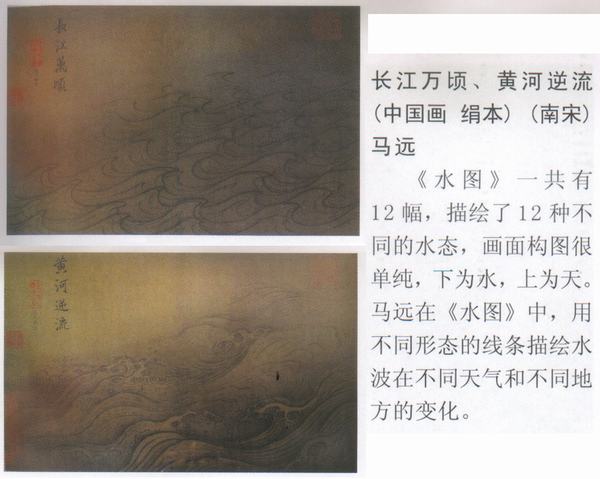 長江萬頃
黄河逆流
长江万顷、黄河逆流
(中国画 绢本) (南宋)
马远
《水图》一共有
12幅，描绘了12种不
同的水态，画面构图很
单纯，下为水，上为天。
马远在《水图》中，用
不同形态的线条描绘水
波在不同天气和不同地
方的变化。